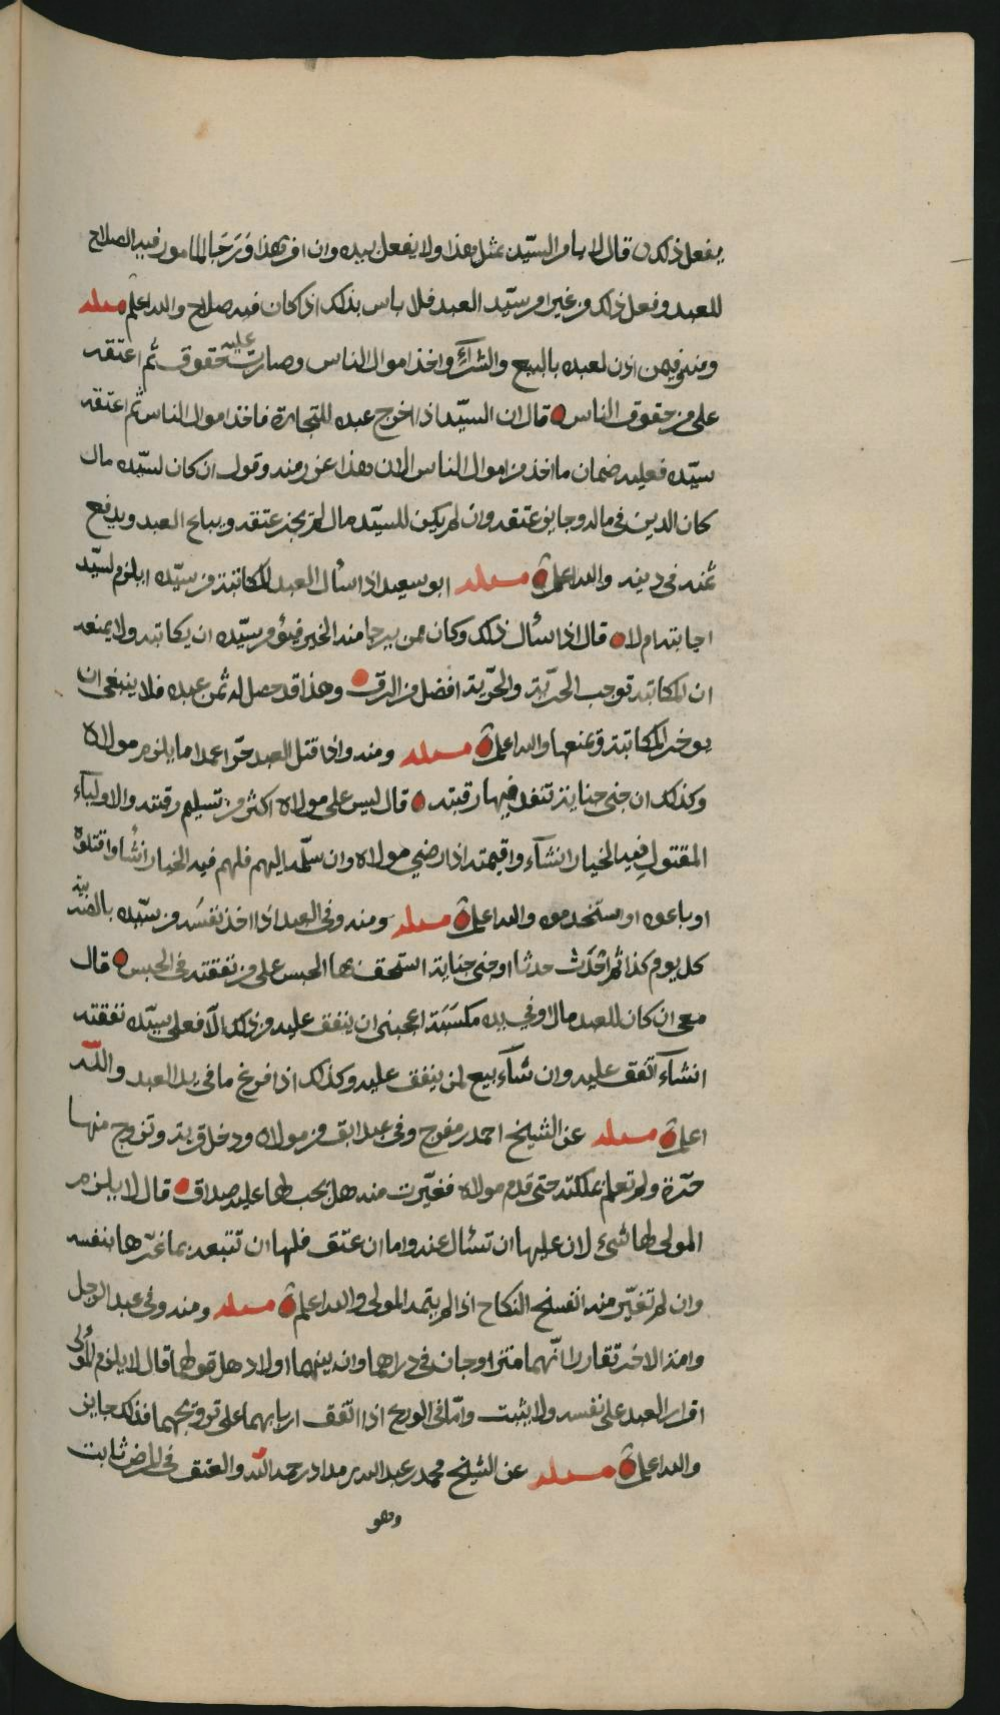 يفعل ذلك قال لا يامر السيّد بمثل هذا ولا يفعل بيده وان افر بهذا ورجا المامور فيه الصلاح
للعبد وفعل ذلك من غير امر سيّد العبد فلا باس بذلك اذا كان فيه صلاح والله اعلم مسلة
ومنه فيمن اذن لعبده بالبيع والشرآء واخذ اموال الناس وصارت عليه حقوق ثم اعتقه
على من حقوق الناس قال ان السيّد اذا اخرج عبده للتجارة فاخذ اموال الناس ثم اعتقه
سيّده فعليه ضمان ما اخذ من اموال الناس لان هذا عن رمنه وقول ان كان لسيّده مال
كان الدين في ماله وجايز عتقه وان لم يكن للسيّد مال لم يجز عتقه ويباع العبد ويدفع
ثمنه في دينه والله اعلم مسلة ابو سعيد اذا سأل العبد المكاتبة من سيّده ايلزم لسيّد
اجابته ام لا قال اذا سأل ذلك وكان ممن يرجا منه الخير فيؤمر سيّده ان يكاتبه ولا يمنعه
ان المكاتبة توجب الحريّة والحريّة افضل من الرق وهذا قد حصل له ثمن عبده فلا ينبغي ان
يوخر المكاتبة ويمنعها والله اعلم مسلة ومنه واذا قتل العبد حرّا عمدا ما يلزم مولاه
وكذلك ان جنى جناية تنفد فيها رقبته قال ليس على مولاه اكثر من تسليم رقبته والاوليآء
المقتول فيه الخيار انشآء واقيمته اذا رضي مولاه وان سلّمه اليهم فلهم فيه الخيار انشاوا قتلوه
او باعوه او استخدموه والله اعلم مسلة ومنه وفي العبد اذا اخذ نفسه من سيّده بالضريبة
كل يوم كذا ثم احدث حدثا او جنى جناية استحق بها الحبس على من نفقته في الحبس قال
معي ان كان للعبد مال او في يده مكسبة اعجبني ان ينفق عليه من ذلك الّا فعلى سيّده نفقته
انشآء انفق عليه وان شآء بيع لمن ينفق عليه وكذلك اذا فرغ ما في يد العبد والله
اعلم مسلة عن الشيخ احمد بن مفرج وفي عبد ابق من مولاه ودخل قرية وتزوج منها
حرّة ولم تعلم بملكته حتى قدم مولاه فغيّرت منه هل يجب لها عليه صداق قال لا يلزم
المولى لها شيء لان عليها ان تسأل عنه واما ان عتق فلها ان تتبعه بما غرّها بنفسه
وان لم تغيّر منه انفسخ النكاح اذا لم يتمه المولى والله اعلم مسلة ومنه وفي عبد الرجل
وامة الاخر تقاررا انّهما متزاوجان في دراهما وان بينهما اولاد هل قولهما قال لا يلزم المولى
اقرار العبد على نفسه ولا يثبت وامّا في الورع اذا اتفق اربابهما على تزويجهما فذلك جايز
والله اعلم مسلة عن الشيخ محمد بن عبد الله بن مداد رحمه الله والعتق في المرض ثابت
وهو